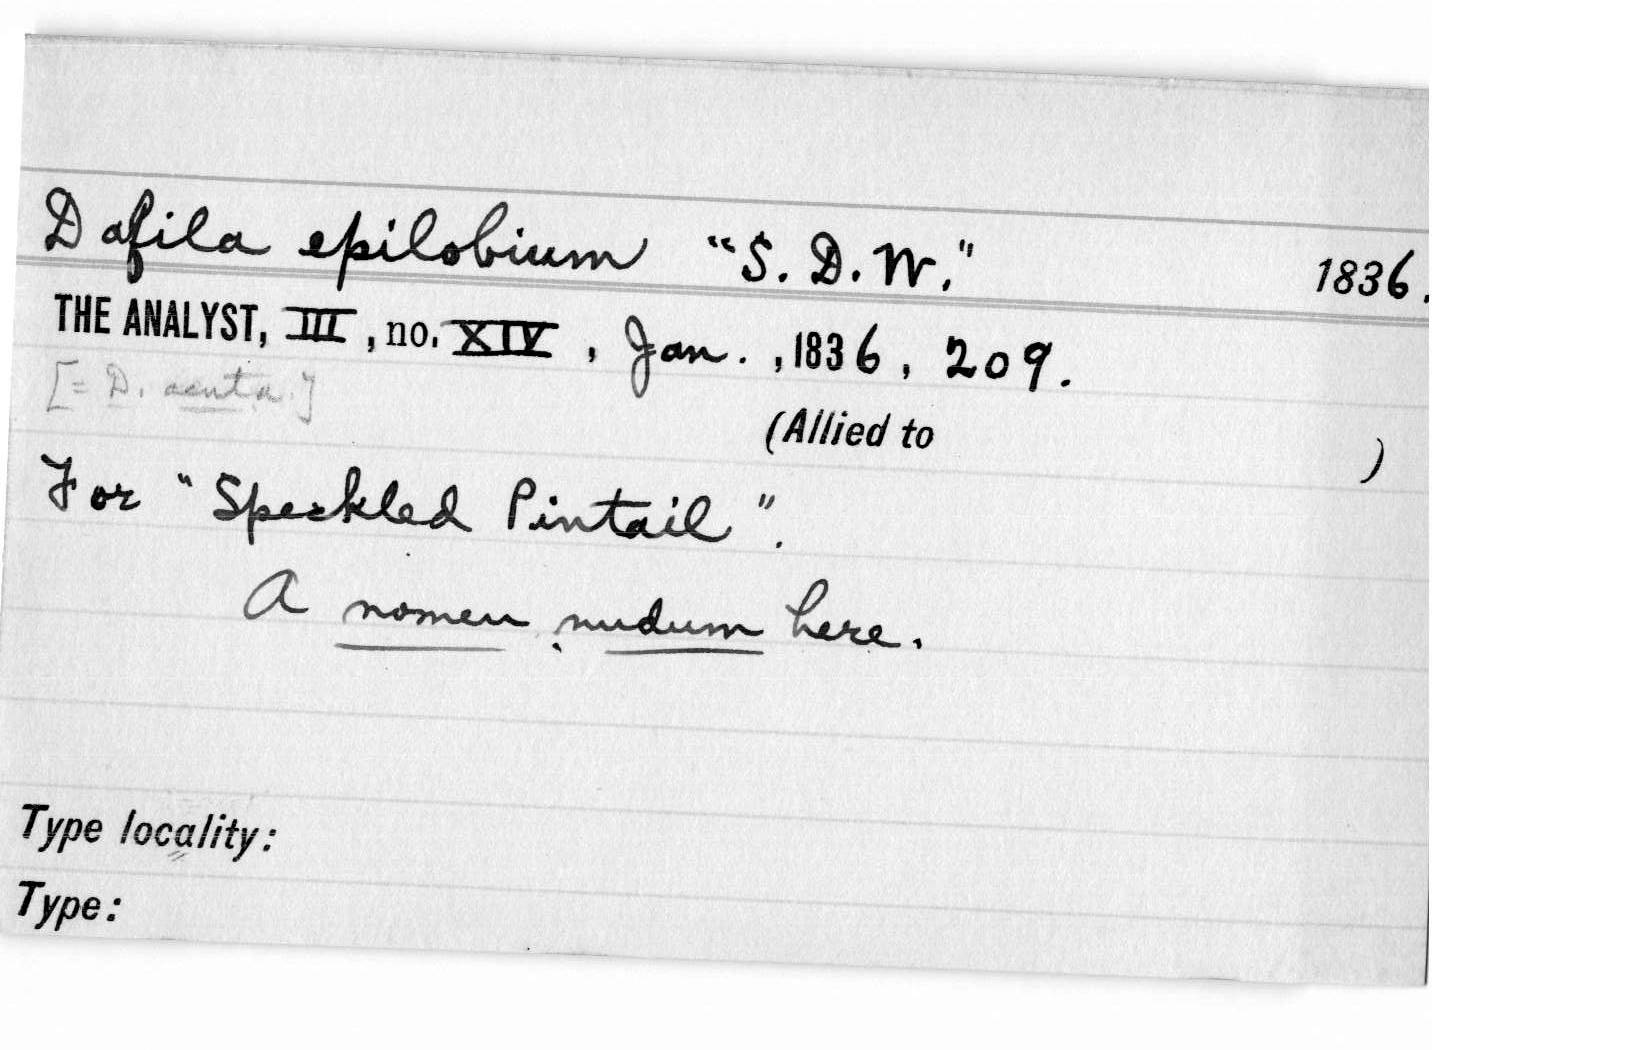 Dafila epilobium "S. D. W." 1836.
THE ANALYST, III, no. XIV, Jan., 1836, 209.
[= D. acuta.]
(Allied to )
For "Speckled Pintail".
A nomen nudum here.
Type locality:
Type: